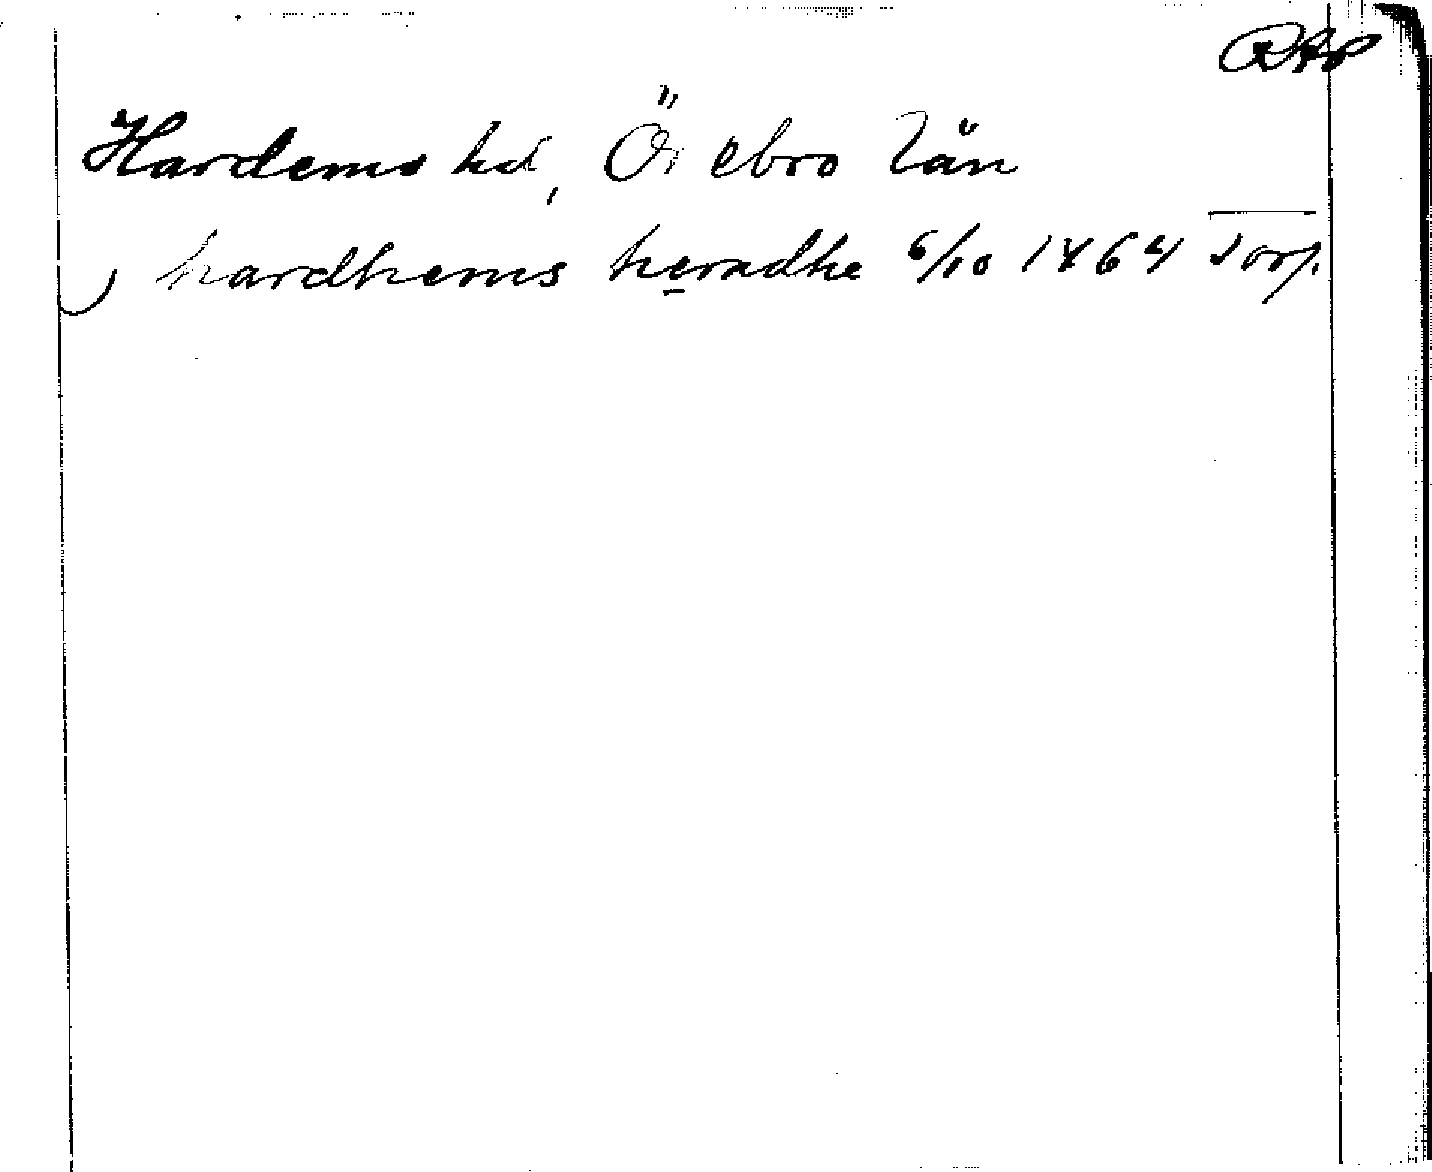 RAP
Hardems hd, Örebro län
hardhems heradhe 6/10 1464 Torp.